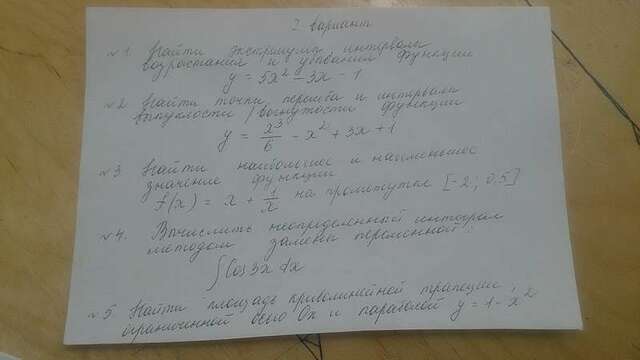 2 вариант
№1 Найти экстремумы, интервалы
возрастания и убывания функции
y = 5x² - 3x - 1
№2 Найти точки перегиба и интервалы
выпуклости / вогнутости функции
y = x³/6 - x² + 3x + 1
№3 Найти наибольшее и наименьшее
значение функции
f(x) = x + 1/x на промежутке [-2; 0,5]
№4. Вычислить неопределенный интеграл
методом замены переменной:
∫Cos3x dx
№5. Найти площадь криволинейной трапеции,
ограниченной осью Ox и параболой y = 1 - x²